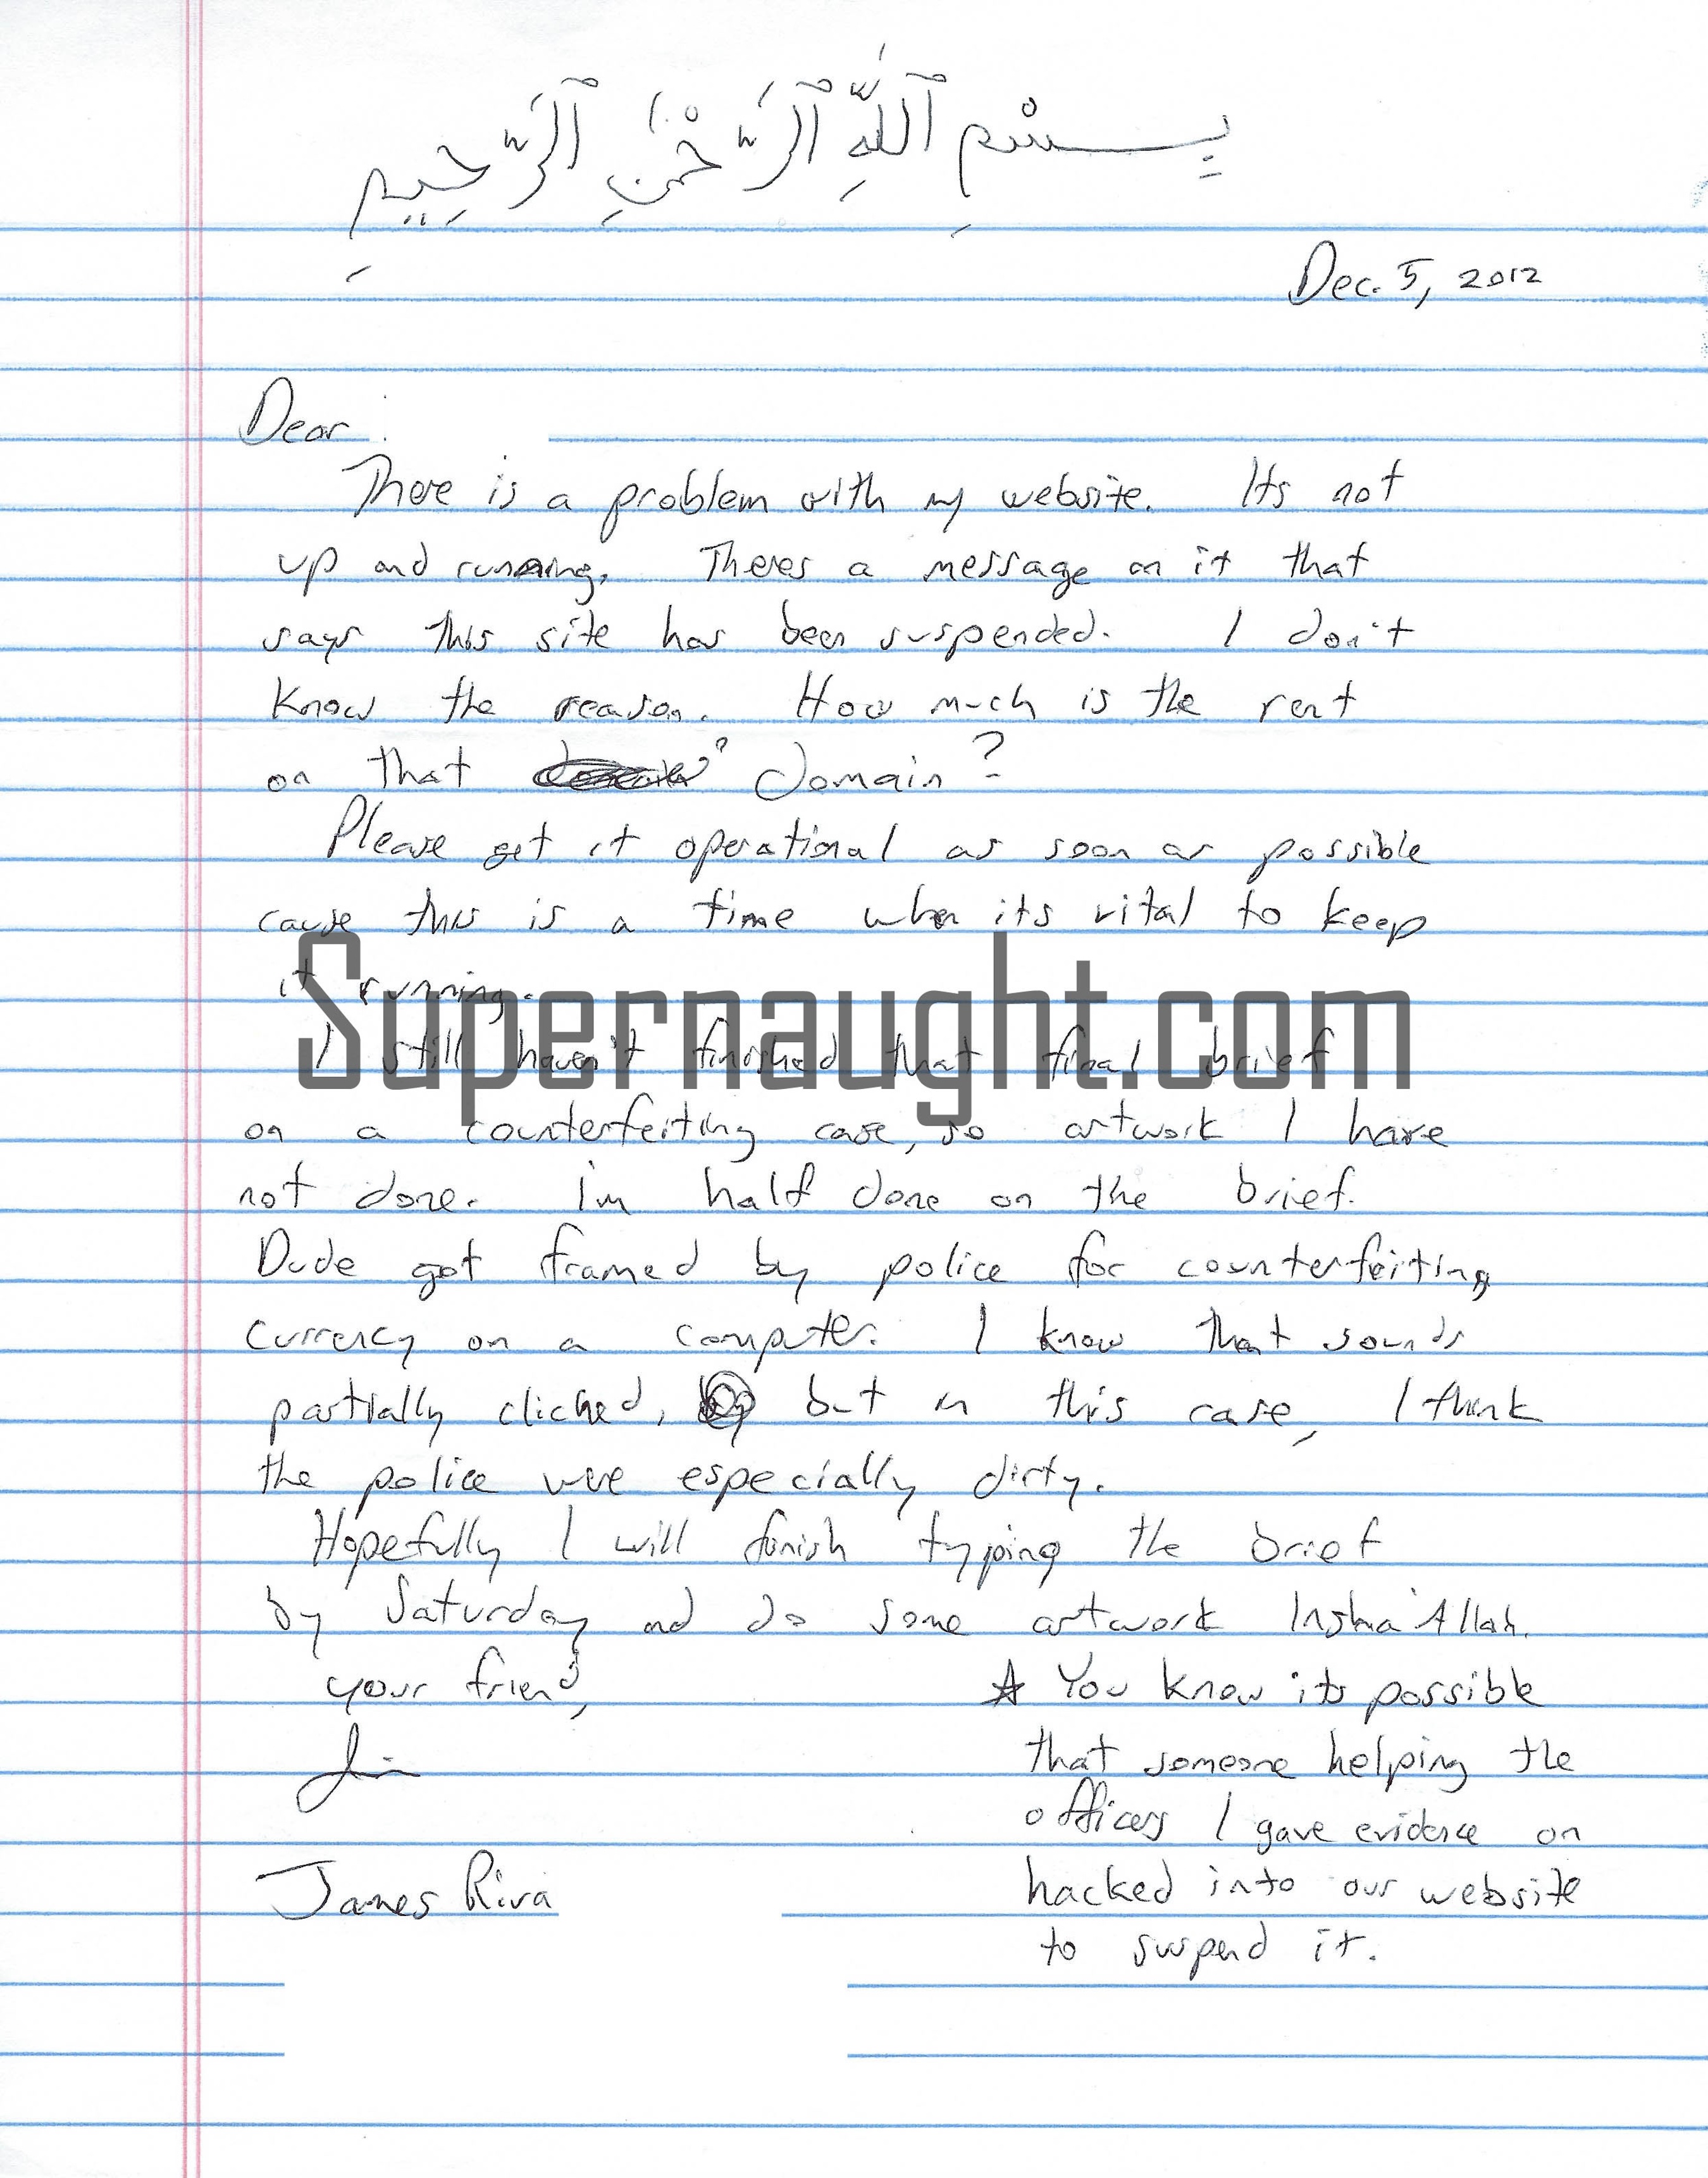 بِسْمِ ٱللَّهِ ٱلرَّحْمَٰنِ ٱلرَّحِيمِ
Dec. 5, 2012
Dear
There is a problem with my website. Its not
up and running. Theres a message on it that
says this site has been suspended. I don't
know the reason. How much is the rent
on that domain?
Please get it operational as soon as possible
cause this is a time when its vital to keep
it running.
Supernaught.com
I still haven't finished that final brief
on a counterfeiting case, so artwork I have
not done. I'm half done on the brief.
Dude got framed by police for counterfeiting
currency on a computer. I know that sounds
partially cliched, but in this case, I think
the police were especially dirty.
Hopefully I will finish typing the brief
by Saturday and do some artwork Insha'Allah.
your friend,
Jim
James Riva
☆ You know its possible
that someone helping the
officers I gave evidence on
hacked into our website
to suspend it.